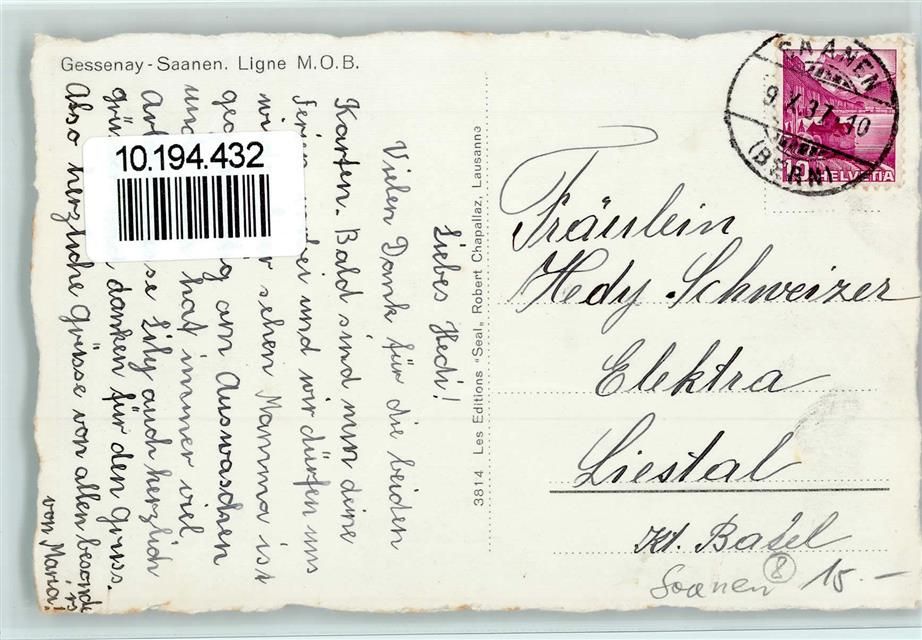 Gessenay - Saanen. Ligne M.O.B.
Liebes Hedi!
Vielen Dank für die beiden
Karten. Bald sind nun deine
Ferien und wir dürfen uns
sehen Mamma ist
am Auswaschen
und hat immer viel
Lily auch herzlich
danken für den Gruss.
Also herzliche Grüsse von allen besonders
von Maria.
10.194.432
3814 Les Editions "Seal" Robert Chapallaz, Lausanne
SAANEN
9.X.37.10
(BERN)
10 HELVETIA
Fräulein
Hedy Schweizer
Elektra
Liestal
Kt. Basel
Saanen 8 15.-